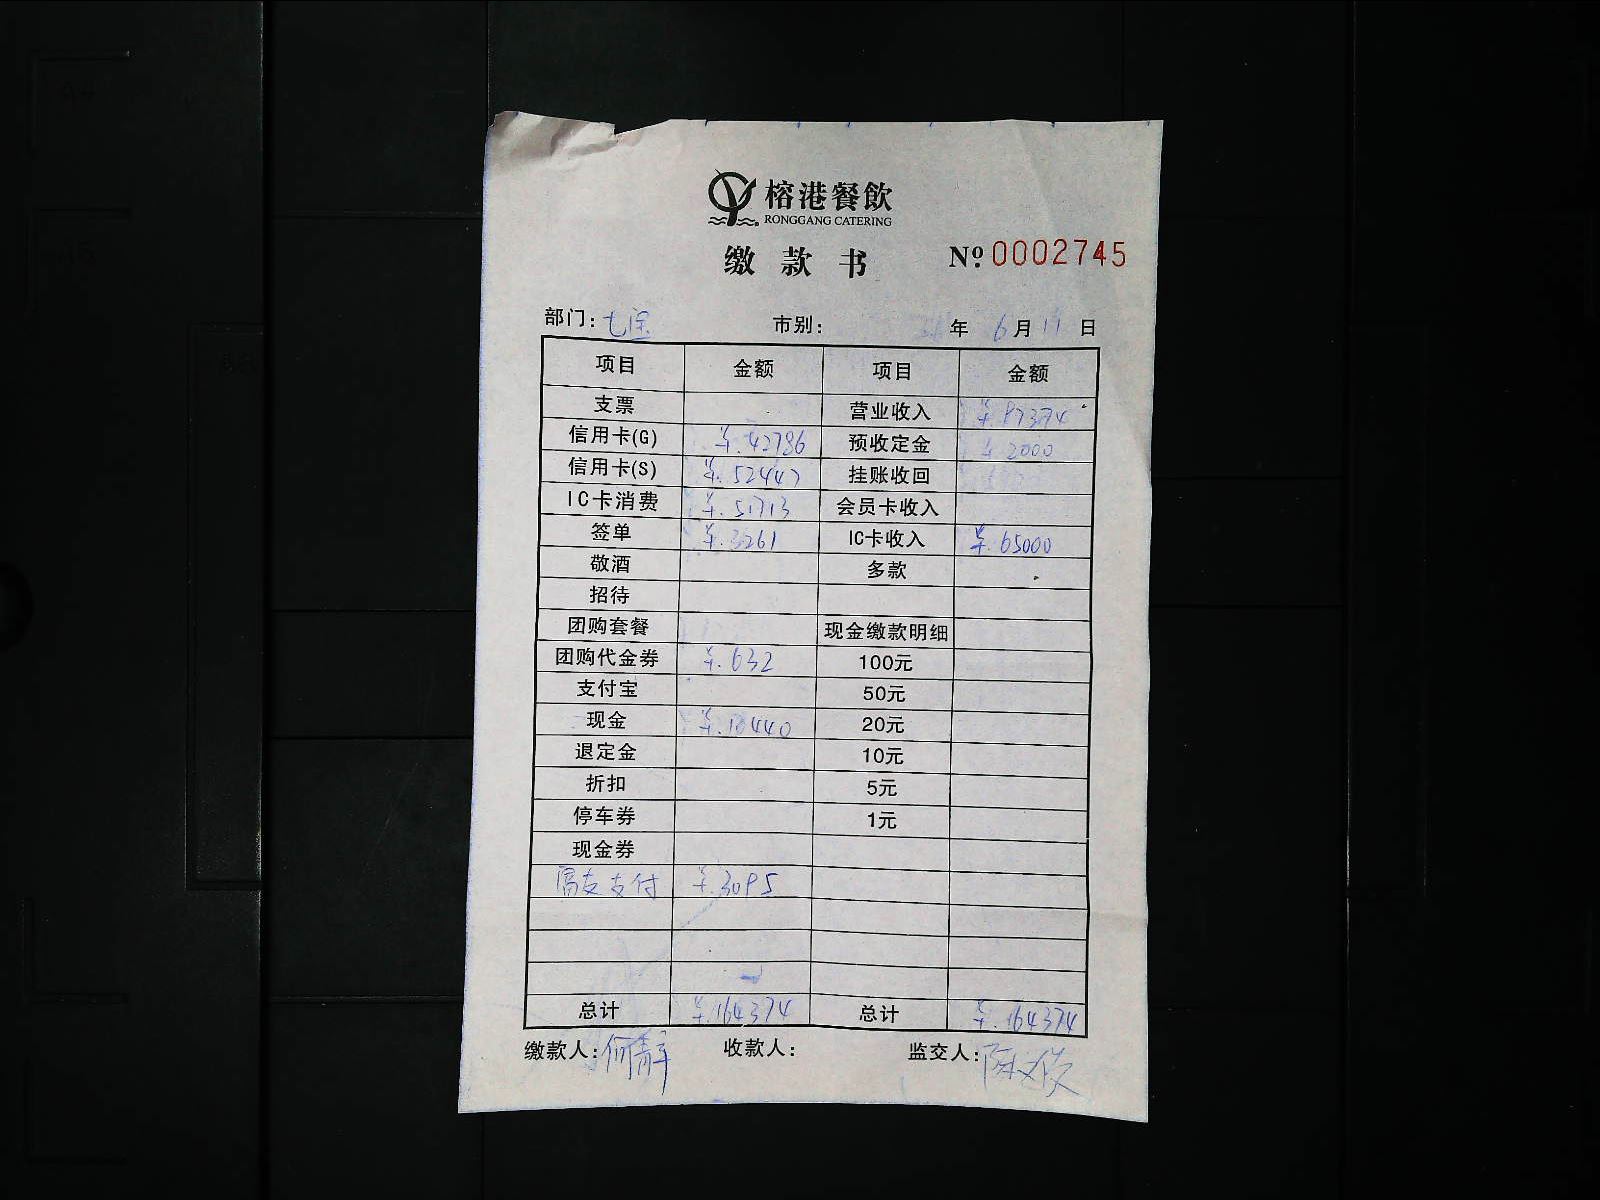 榕港餐飲
RONGGANG CATERING
缴款书 Nº 0002745
部门: 七宝 市别: 年 6月 11日
项目 金额 项目 金额
支票 营业收入 ¥.97374
信用卡(G) ¥.42786 预收定金 ¥ 2000
信用卡(S) ¥.52447 挂账收回
IC卡消费 ¥.51713 会员卡收入
签单 ¥.3261 IC卡收入 ¥.65000
敬酒 多款
招待
团购套餐 现金缴款明细
团购代金券 ¥.632 100元
支付宝 50元
现金 ¥.10440 20元
退定金 10元
折扣 5元
停车券 1元
现金券
富友支付 ¥.3095
总计 ¥.164374 总计 ¥.164374
缴款人: 何静 收款人: 监交人: